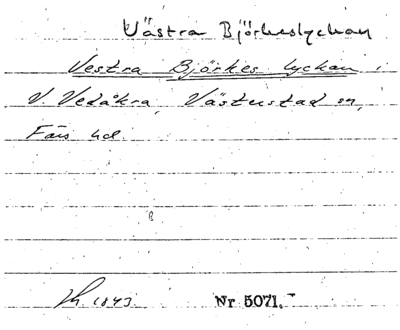 Västra Björkeslyckan
Vestra Björkes lyckan i
V. Vedåkra, Västerstad sn,
Färs hd.
1843. Nr 5071.